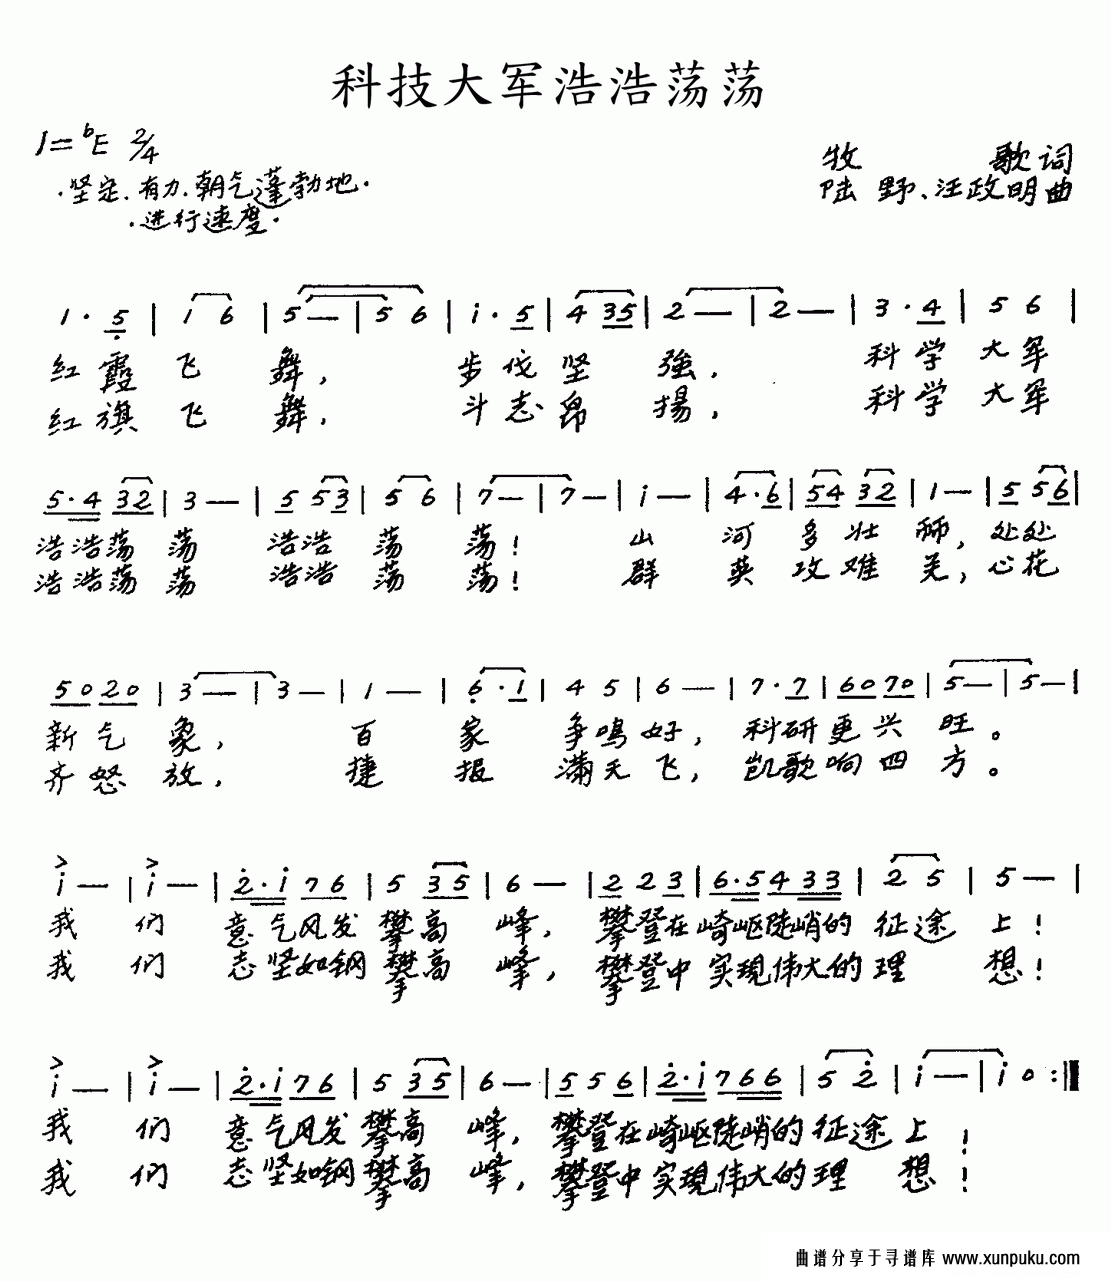 科技大军浩浩荡荡
1=ᵇE 2/4
牧 歌词
·坚定、有力、朝气蓬勃地·
陆 野、汪政明曲
·进行速度·
1·5 | 1 6 | 5— | 5 6 | i·5 | 4 35 | 2— | 2— | 3·4 | 5 6 |
红霞飞舞，步伐坚強，科学大军
红旗飞舞，斗志昂揚，科学大军
5·4 32 | 3— | 5 53 | 5 6 | 7— | 7— | i— | 4·6 | 54 32 | 1— | 5 56 |
浩浩荡荡浩浩荡荡！山河多壮丽，处处
浩浩荡荡浩浩荡荡！群英攻难关，心花
50 20 | 3— | 3— | 1— | 6·1 | 4 5 | 6— | 7·7 | 60 70 | 5— | 5— |
新气象，百家争鸣好，科研更兴旺。
齐怒放，捷报满天飞，凯歌响四方。
i— | i— | 2·i 76 | 5 35 | 6— | 2 2 3 | 6·5 4 33 | 2 5 | 5— |
我们意气风发攀高峰，攀登在崎岖陡峭的征途上！
我们志坚如钢攀高峰，攀登中实現伟大的理想！
i— | i— | 2·i 76 | 5 35 | 6— | 5 5 6 | 2·i 7 66 | 5 2 | i— | i 0 :||
我们意气风发攀高峰，攀登在崎岖陡峭的征途上！
我们志坚如钢攀高峰，攀登中实現伟大的理想！
曲谱分享于寻谱库 www.xunpuku.com